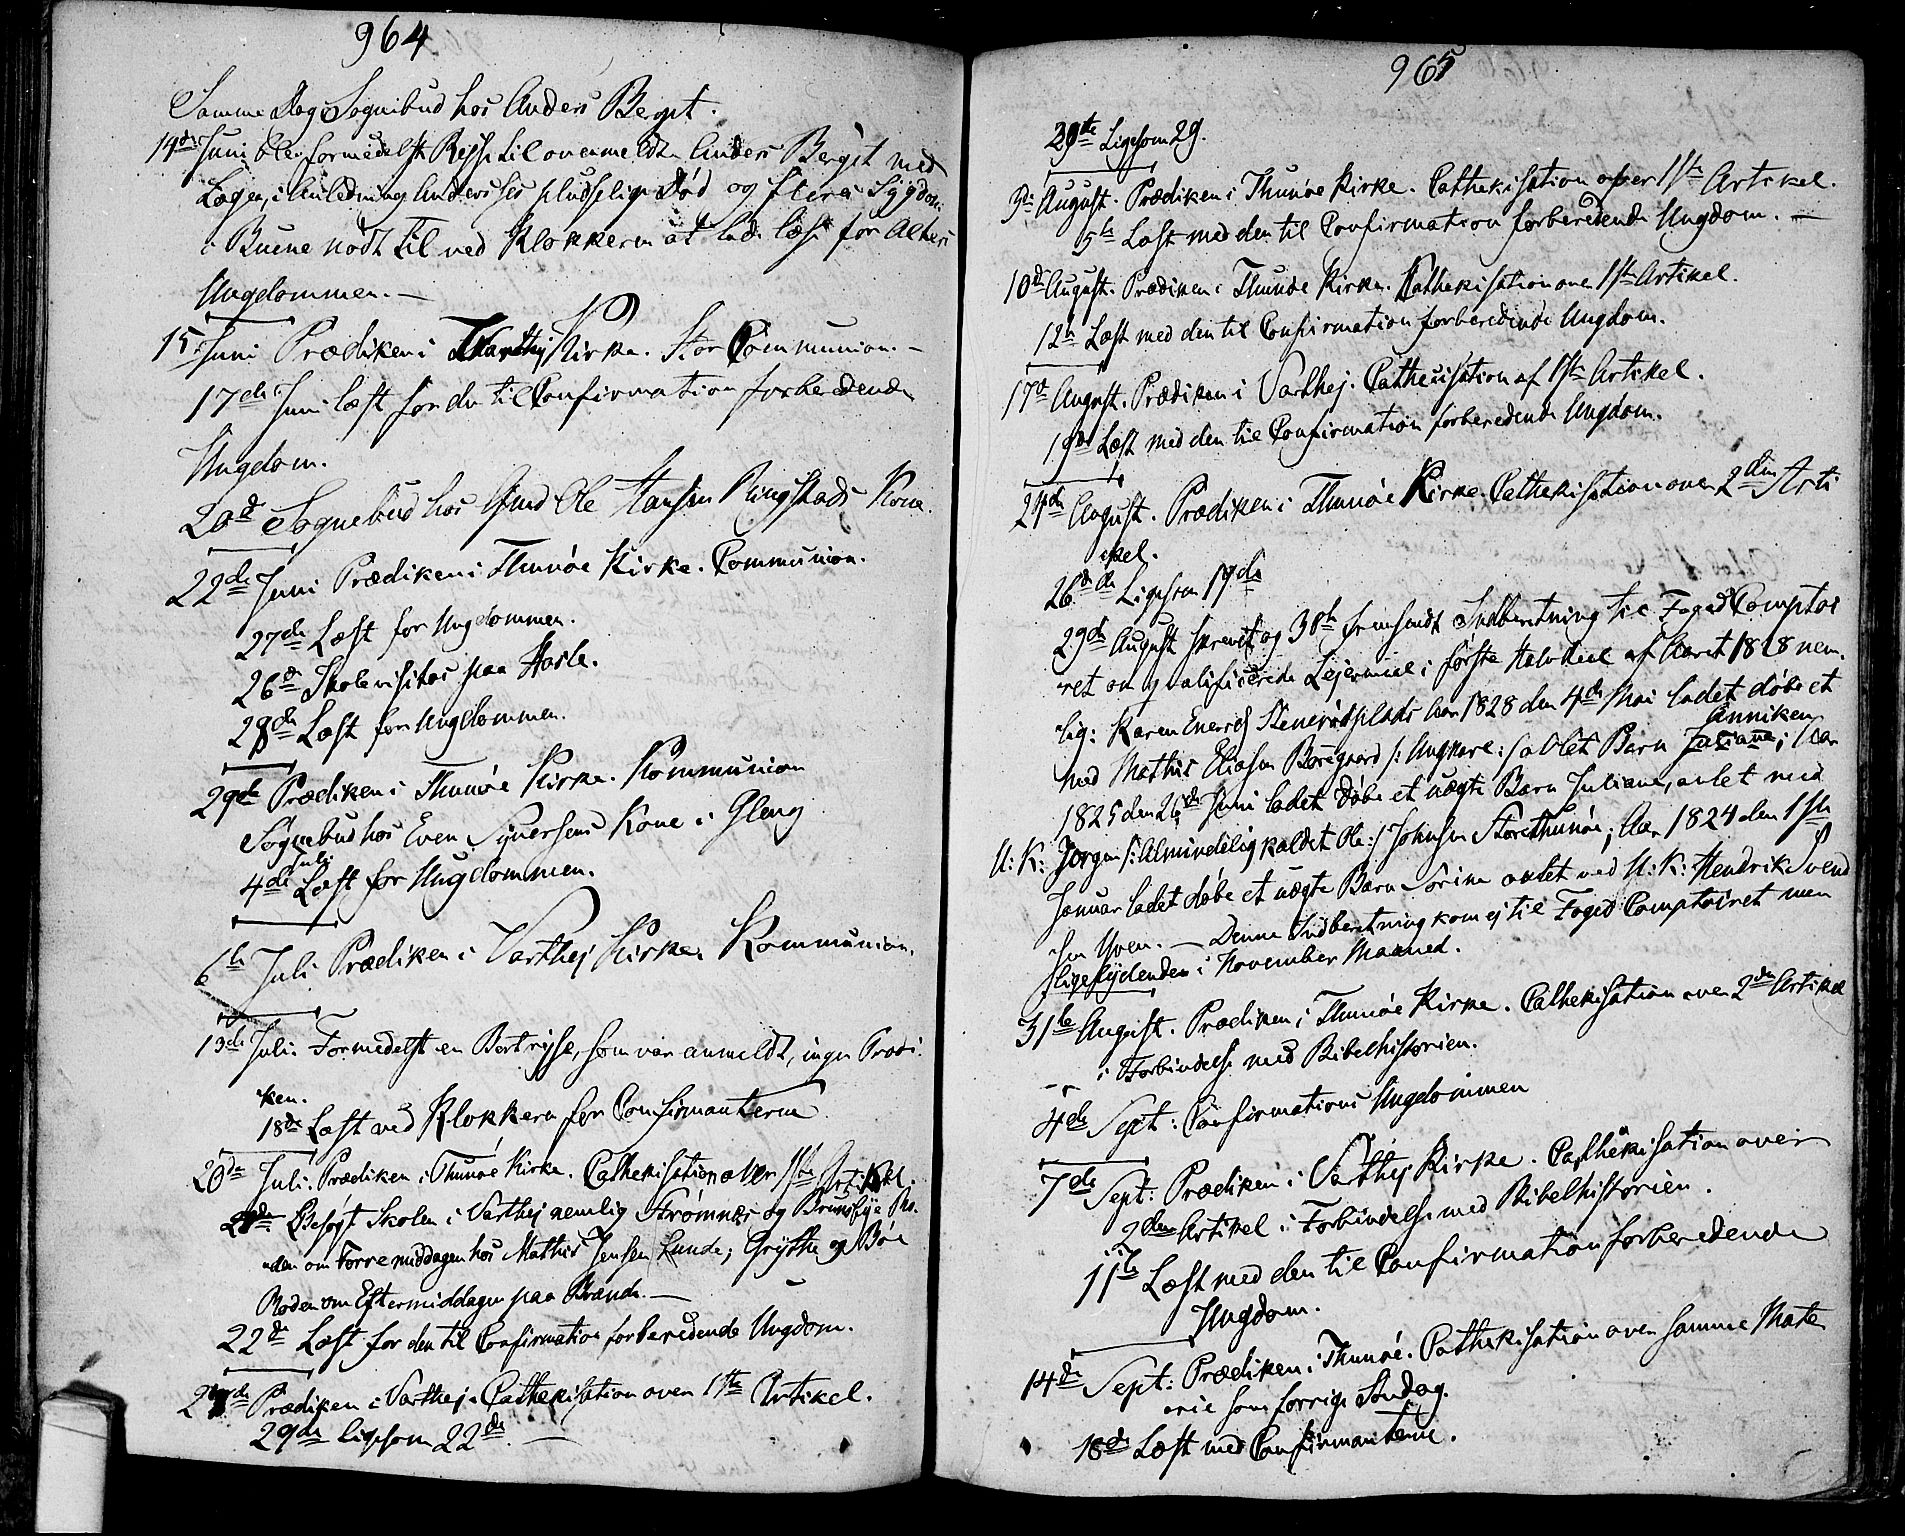 964
Samme Dag Sognebud hos Anders Bergst.
14de Juni blev formedelst Rejse til ovenmeldte Anders Bergst med
Lægen, i Anledning Anderses pludselige Død og flere Sygdom
i Buene nødt til ved Klokkeren at lade læse for
Ungdommen. —
15 Juni Prædiken i Varthej Kirke. Stor Communion. —
17de Juni læst for de til Confirmation forberedende
Ungdom.
20de Sognebud hos Ole Hansen Ringstads Kone.
22de Juni Prædiken i Thunøe Kirke. Communion.
27de Læst for Ungdommen.
26de Skolevisitas paa Hasle.
28de Læst for Ungdommen.
29de Prædiken i Thunøe Kirke. Kommunion
Søgnebud hos Even Syversens Kone i Gleng
Juli
4de Læst for Ungdommen.
6te Juli Prædiken i Varthej Kirke. Kommunion.
13de Juli. Formedelst en Bortrejse, som var anmeldt, ingen Prædi
ken.
18de Læst ved Klokkeren for Confirmanterne
20de Juli. Prædiken i Thunøe Kirke. Cathekisation over 1ste Artikel.
21de Besøgt Skolen i Varthej nemlig Strømnæs og Brunsbye Ro
den om Formiddagen hos Mathis Jensen Lunde; Grythe og Bøe
Roden om Eftermiddagen paa Brænde. —
22de Læst for den til Confirmation forberedende Ungdom.
27de Prædiken i Varthej. Cathekisation over 1ste Artikel.
29de ligesom 22de. —
965
29te Ligesom 29.
3de August. Prædiken i Thunøe Kirke. Cathekisation over 1ste Artikel.
5te Læst med den til Confirmation forberedende Ungdom. —
10de August. Prædiken i Thunøe Kirke. Kathekisation over 1ste Artikel.
12te Læst med den til Confirmation forberedende Ungdom.
17de August. Prædiken i Varthej. Cathecisation af 1ste Artikel.
19de Læst med den til Confirmation forberedende Ungdom.
24de August. Prædiken i Thunøe Kirke. Cathekisation over 2den Arti
kel.
26de Ligesom 19de
29de August skrevet og 30te fremsendt Indberetning til Foged Comptoi
ret om qvalificerede Lejermaal i første Halvdeel af Aaret 1828 nem
lig: Karen Enersd Stenerødsplads har 1828 den 4de Mai ladet døbe et
Anniken
med Mathis Eliasen Børsgaard /: Ungkarl :/ avlet Barn Juliane; Aar
1825 den 26de Juni ladet døbe et uægte Barn Juliane, avlet med
U: K: Jørgen /: Almindelig kaldet Ole :/ Johnsen Storethunøe; Aar 1824 den 1ste
Januar ladet døbe et uægte Barn Sørine avlet med U: K: Hendrik Svend
sen Hven. — Denne Indberetning kom ej til Foged Comptoiret men
ligelydenden i November Maaned.
31te August. Prædiken i Thunøe Kirke. Cathekisation over 2den Artikel
i Forbindelse med Bibelhistorien.
4de Sept: Confirmations Ungdommen
7de Sept: Prædiken i Varthej Kirke. Cathekisation over
2den Artikel i Forbindelse med Bibelhistorien.
11te Læst med den til Confirmation forberedende
Ungdom.
14de Sept: Prædiken i Thunøe. Cathekisation over samme Mate
rie som forrige Søndag.
18de Læst med Confirmanterne.